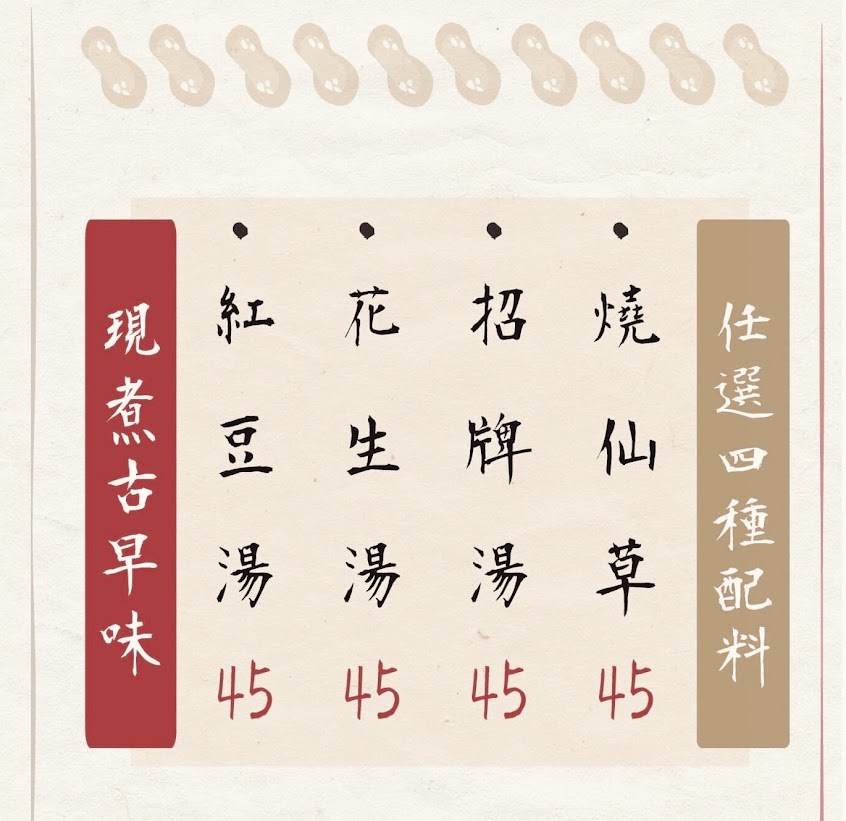 任選四種配料
燒仙草 45
招牌湯 45
花生湯 45
紅豆湯 45
現煮古早味